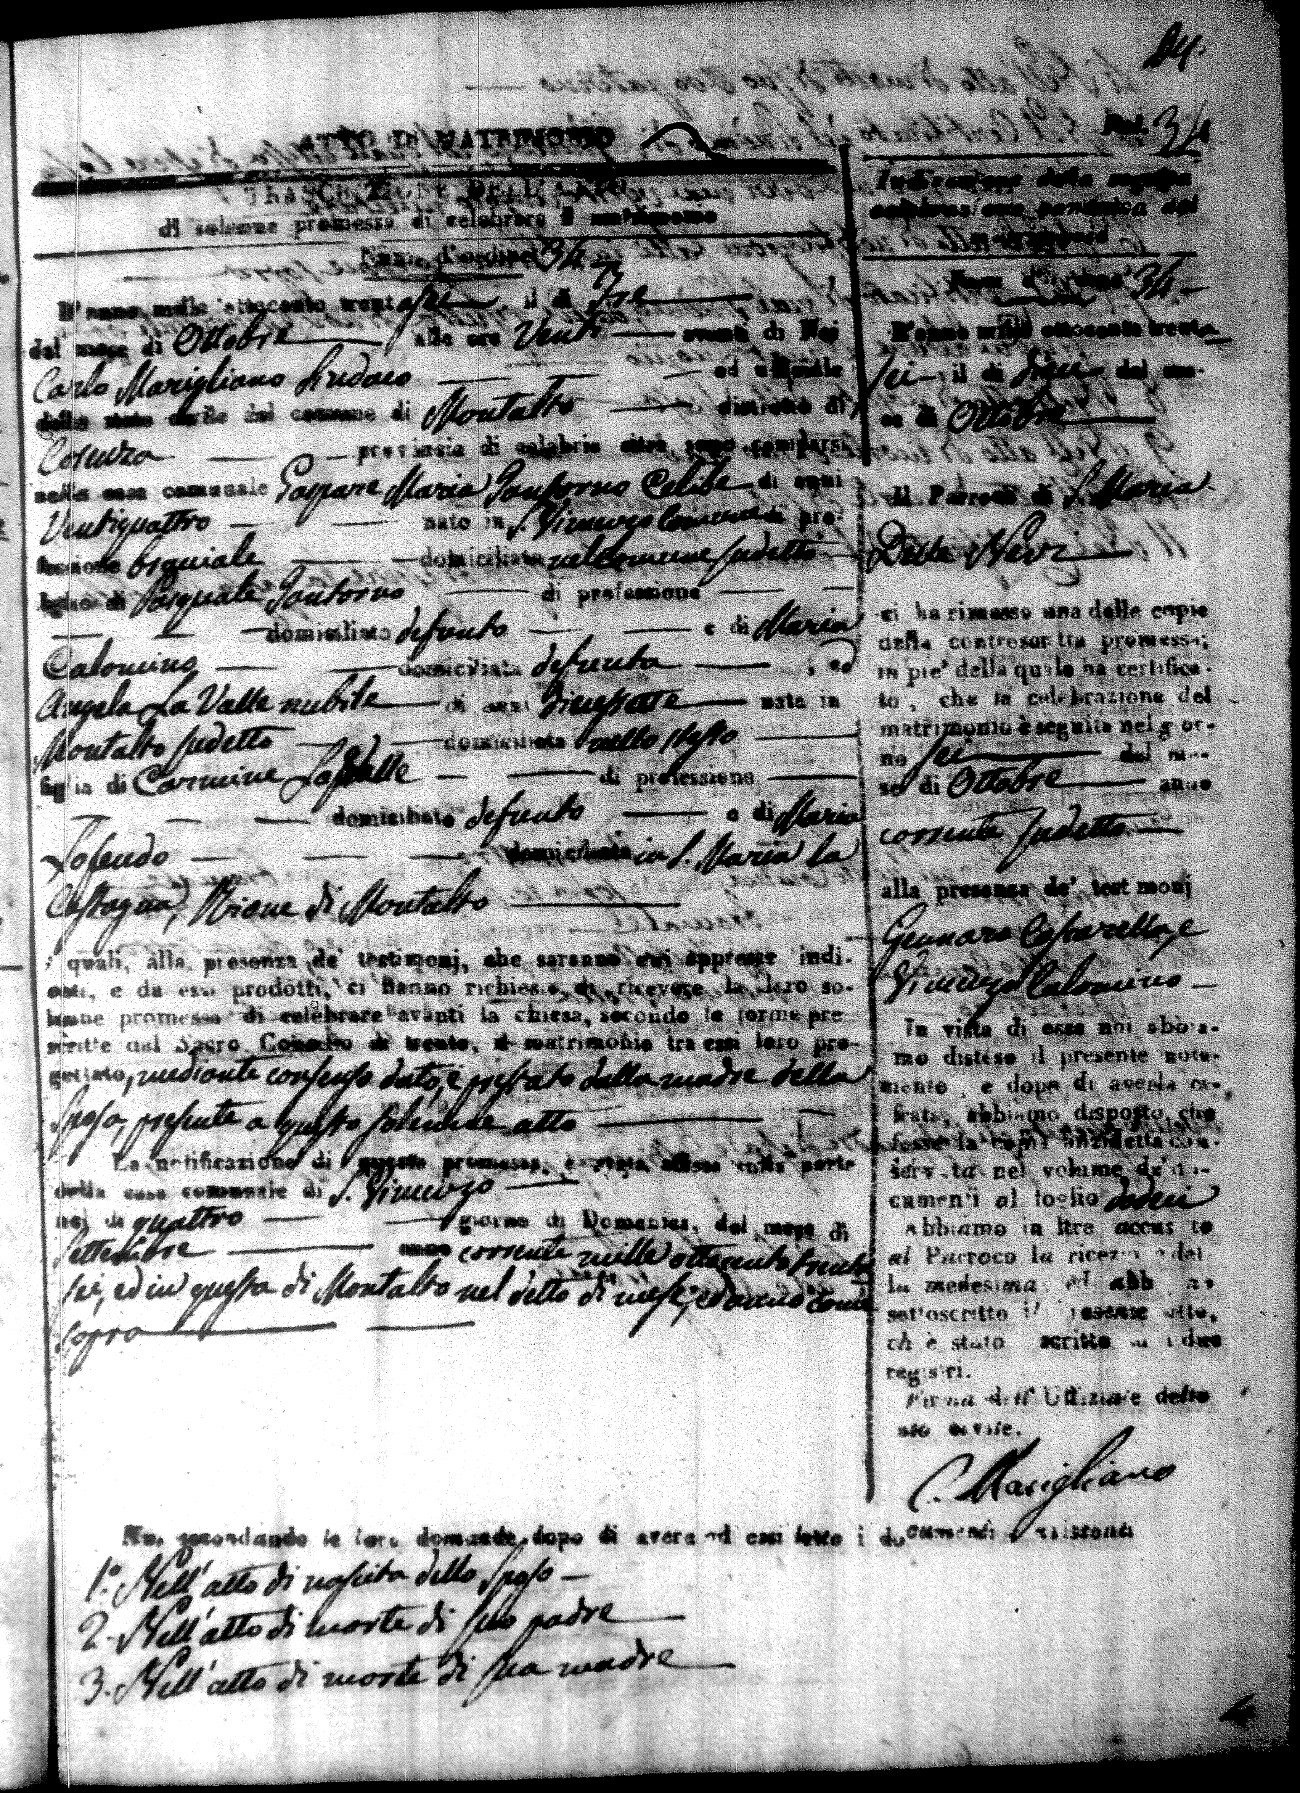 24.
Fol. 34
ATTO DI MATRIMONIO
di solenne promessa di celebrare il matrimonio
Num. d'ordine 34
L'anno mille ottocento trentasei il dì Tre
del mese di Ottobre alle ore Venti avanti di Noi
Carlo Marigliano Sindaco ed uffiziale
dello stato civile del comune di Montalto distretto di
Cosenza provincia di calabria citra sono comparsi
nella casa comunale Gaspare Maria Santorno Celibe di anni
Ventiquattro nato in S. Vincenzo Comune di pro-
fessione braciale domiciliato nel comune sudetto
figlio di Pasquale Santorno di professione
domiciliato defunto e di Maria
Calomino domiciliata defunta , ed
Angela La Valle nubile di anni Diecisette nata in
Montalto sudetto domiciliata nello stesso
figlia di Carmine La Valle di professione
domiciliato defunto e di Maria
domiciliata in S. Maria la
Castagna, Rione di Montalto
i quali, alla presenza de' testimonj, che saranno qui appresso indi-
cati, e da essi prodotti, ci hanno richiesto di ricevere la loro so-
lenne promessa di celebrare avanti la chiesa, secondo le forme pre
scritte dal Sacro Concilio di trento, il matrimonio tra essi loro pro-
gettato, mediante consenso dato, e prestato dalla madre della
sposa, presente a questo solenne atto
La notificazione di questa promessa, è stata affissa sulla porta
della casa comunale di S. Vincenzo
nel dì quattro giorno di Domenica, del mese di
Settembre anno corrente mille ottocento trenta
sei, ed in questa di Montalto nel detto dì mese, ed anno come
sopra
Noi, secondando le loro domande, dopo di avere ad essi letto i documenti consistenti
1.º Nell'atto di nascita dello Sposo
2. Nell'atto di morte di suo padre
3. Nell'atto di morte di sua madre
Indicazione della seguita
celebrazione canonica del
matrimonio
Num. d'ordine 34
L'anno mille ottocento trenta
sei il dì dieci del me-
se di Ottobre
Il Parroco di S. Maria
Della Nevi
ci ha rimesso una delle copie
della controscritta promessa;
in piè della quale ha certifica-
to, che la celebrazione del
matrimonio è seguita nel gior-
no sei del me-
se di Ottobre anno
corrente sudetto
alla presenza de' testimonj
Gennaro Caparella, e
Vincenzo Calomino
In vista di essa noi abbia-
mo disteso il presente nota-
mento, e dopo di averla ci-
frata, abbiamo disposto che
fosse la copia anzidetta con-
servata nel volume de' do-
cumenti al foglio dodeci
Abbiamo in ltre accus to
al Parroco la ricezione del
la medesima ed abbiamo
sottoscritto il presente atto,
ch è stato scritto su i due
registri.
Firma dell'Uffiziale dello
stato civile.
C. Marigliano